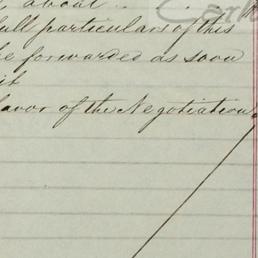 about
Carl
full particulars of this
be forwarded as soon
it
favor of the Negotiation